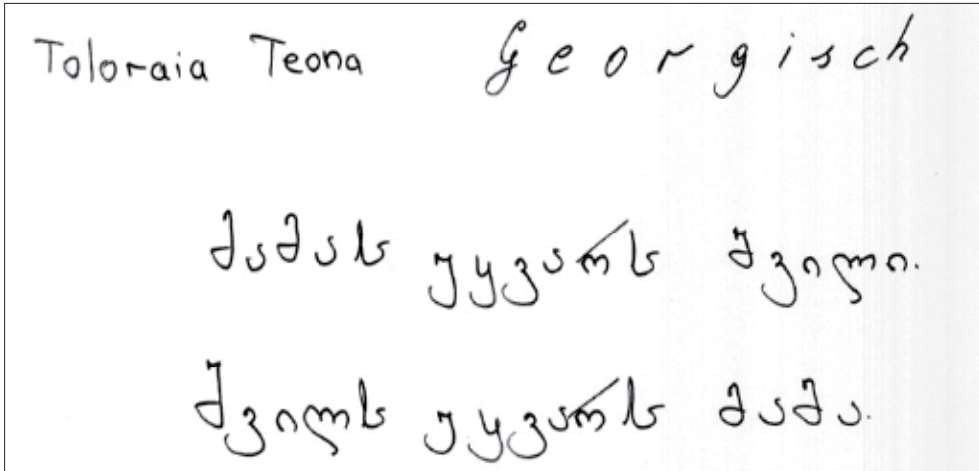 Toloraia Teona Georgisch
მამას უყვარს შვილი.
შვილს უყვარს მამა.